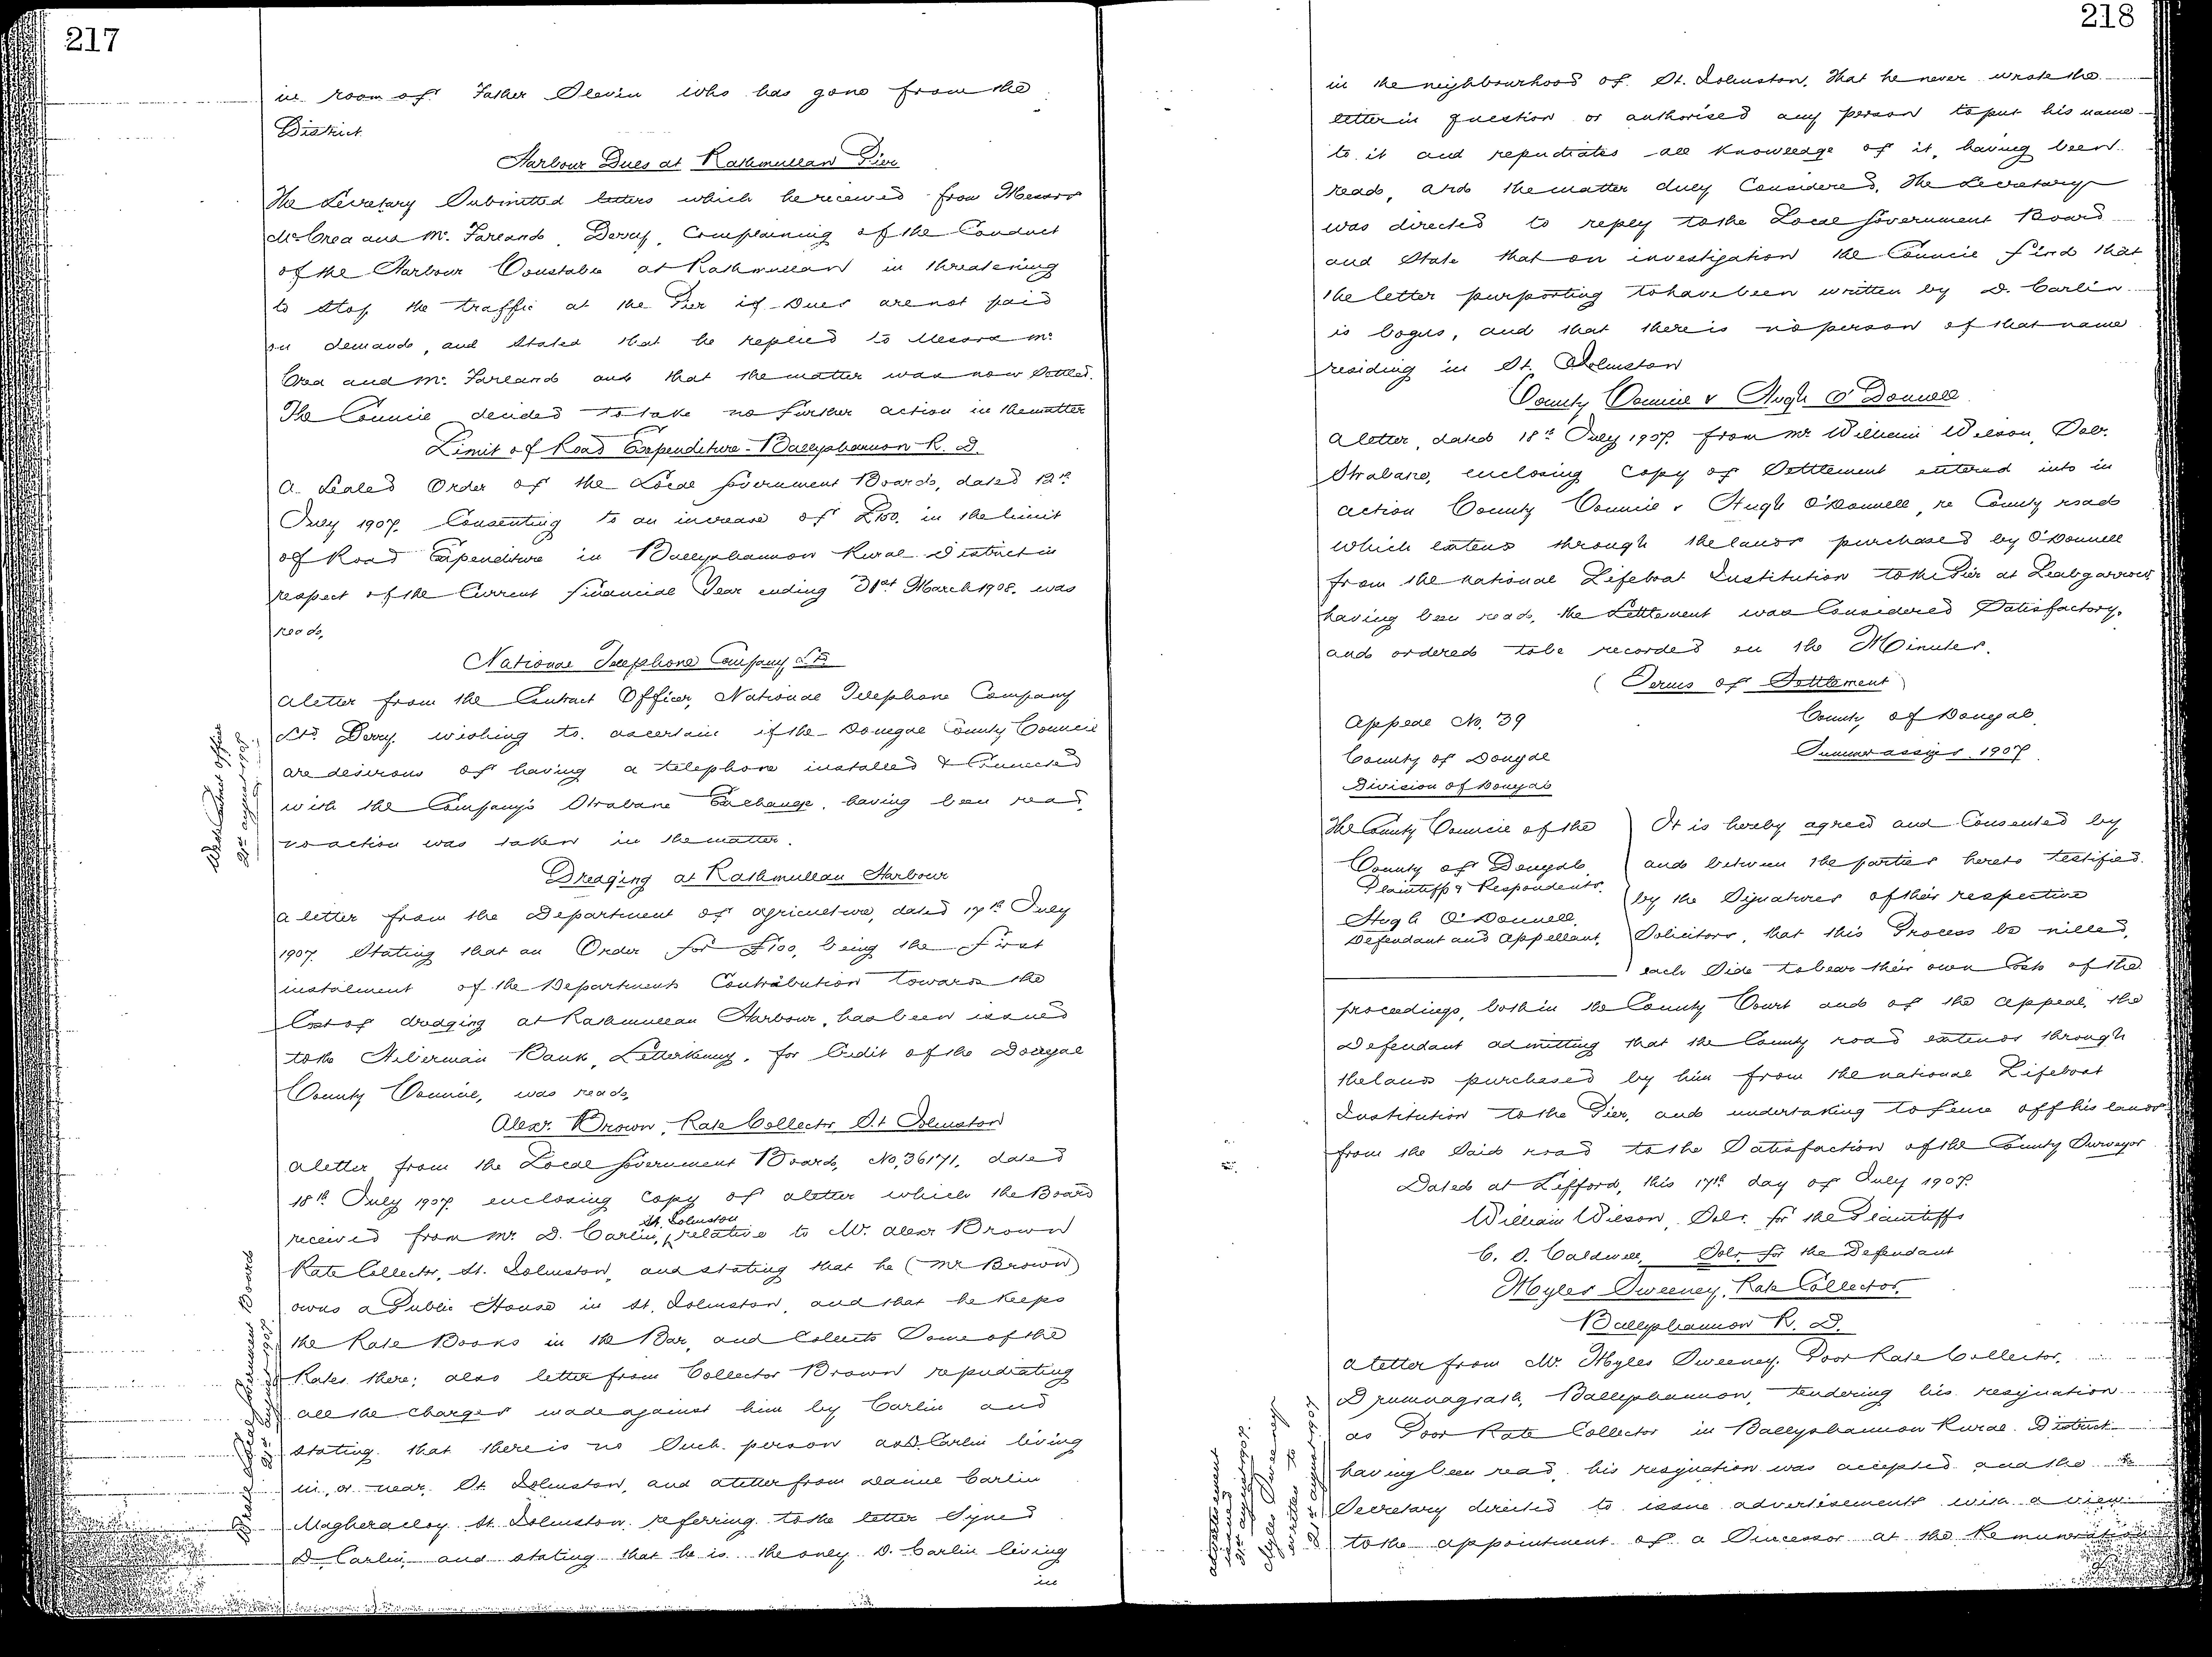 217
in room of Father Slevin who has gone from the
District.
Harbour Dues at Rathmullan Pier
The Secretary Submitted letters which he received from Messrs
McCrea and McFarland, Derry, Complaining of the Conduct
of the Harbour Constable at Rathmullan in threatening
to stop the traffic at the Pier if Dues are not paid
on demand, and stated that he replied to Messrs Mc
Crea and McFarland and that the matter was now settled.
The Council decided to take no further action in the matter
Limit of Road Expenditure - Ballyshannon R. D.
A Sealed Order of the Local Government Board, dated 12th
July 1907. Consenting to an increase of £100. in the limit
of Road Expenditure in Ballyshannon Rural District in
respect of the Current financial Year ending 31st March 1908. was
read.
National Telephone Company Ld
A letter from the Contract Officer, National Telephone Company
Ltd. Derry. wishing to ascertain if the Donegal County Council
are desirous of having a telephone installed & Connected
with the Company's Strabane Exchange, having been read
no action was taken in the matter.
Wrote Contract Officer
21st August 1907.
Dredging at Rathmullan Harbour
A letter from the Department of Agriculture, dated 17th July
1907. Stating that an Order for £100, being the first
instalment of the Departments Contribution towards the
Cost of dredging at Rathmullan Harbour, has been issued
to the Hibernian Bank, Letterkenny, for Credit of the Donegal
County Council, was read.
Alexr. Brown, Rate Collector St Johnston
A letter from the Local Government Board, No, 36171, dated
18th July 1907. enclosing Copy of a letter which the Board
received from Mr. D. Carlin, St. Johnston relative to Mr. Alexr Brown
Rate Collector, St. Johnston, and stating that he (Mr Brown)
owns a Public House in St. Johnston, and that he keeps
the Rate Books in the Bar, and Collects Some of the
Rates there; also letter from Collector Brown repudiating
all the charges made against him by Carlin and
stating that there is no Such person as D. Carlin living
in, or near, St. Johnston, and a letter from Daniel Carlin
Magheracloy St. Johnston referring to the letter Signed
D. Carlin, and stating that he is the only D. Carlin living
in
Wrote Local Government Board
21st August 1907.
218
in the neighbourhood of St. Johnston, that he never wrote the
letter in question or authorised any person to put his name
to it and repudiates all knowledge of it, having been
read, and the matter duly Considered, the Secretary
was directed to reply to the Local Government Board
and State that on investigation the Council find that
the letter purporting to have been written by D. Carlin
is bogus, and that there is no person of that name
residing in St. Johnston
County Council v Hugh O'Donnell
A letter, dated 18th July 1907. from Mr William Wilson, Solr.
Strabane, enclosing copy of Settlement entered into in
action County Council v Hugh O'Donnell, re County road
which extends through the lands purchased by O'Donnell
from the National Lifeboat Institution to the Pier at Leabgarrow
having been read, the Settlement was Considered Satisfactory,
and ordered to be recorded on the Minutes.
(Terms of Settlement)
Appeal No. 39
County of Donegal.
County of Donegal
Summer assizes 1907
Division of Donegal
The County Council of the
County of Donegal
Plaintiffs & Respondents.
Hugh O'Donnell
Defendant and Appellant.
It is hereby agreed and Consented by
and between the parties hereto testified
by the Signatures of their respective
Solicitors, that this Process be nilled,
each Side to bear their own Costs of the
proceedings, both in the County Court and of the Appeal, the
Defendant admitting that the County road extends through
the lands purchased by him from the National Lifeboat
Institution to the Pier, and undertaking to fence off his lands
from the Said road to the Satisfaction of the County Surveyor
Dated at Lifford, this 17th day of July 1907.
William Wilson, Solr. for the Plaintiffs
C. S. Caldwell, Solr. for the Defendant
Myles Sweeney, Rate Collector,
Ballyshannon R. D.
A letter from Mr. Myles Sweeney, Poor Rate Collector,
Ballyshannon, tendering his resignation
as Poor Rate Collector in Ballyshannon Rural District
having been read, his resignation was accepted and the
Secretary directed to issue advertisements with a view
to the appointment of a Successor at the Remuneration
advertisement
issued
21st August 1907.
Myles Sweeney
written to
21st August 1907